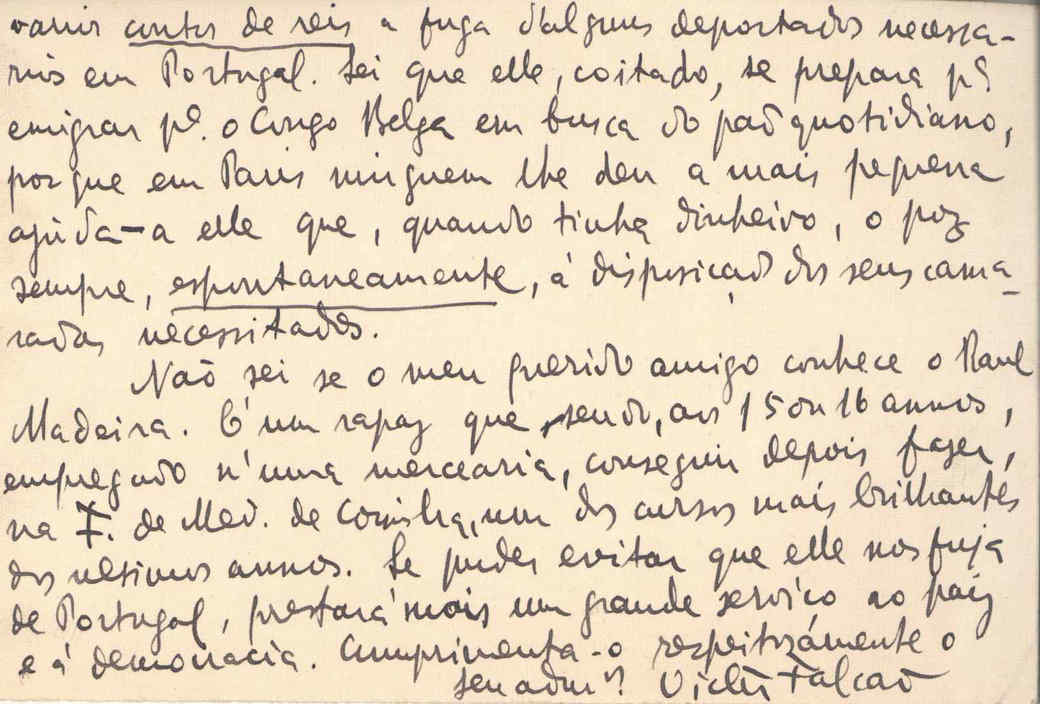 varios contos de reis a fuga d'alguns deportados necessa-
rios em Portugal. Sei que elle, coitado, se prepara pª
emigrar pª. o Congo Belga em busca do pão quotidiano,
porque em Paris ninguem lhe deu a mais pequena
ajuda - a elle que, quando tinha dinheiro, o poz
sempre, espontaneamente, á disposição dos seus cama-
radas necessitados.
Não sei se o meu querido amigo conhece o Raul
Madeira. É um rapaz que, sendo, aos 15 ou 16 annos,
empregado n'uma mercearia, conseguiu depois fazer,
na F. de Med. de Coimbra, um dos cursos mais brilhantes
dos ultimos annos. Se puder evitar que elle nos fuja
de Portugal, prestará mais um grande serviço ao paiz
e á democracia. Cumprimenta-o respeitosamente o
seu admºr Victor Falcão